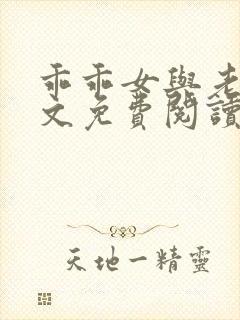 乖乖女與老
文免費閱讀
天地一精靈